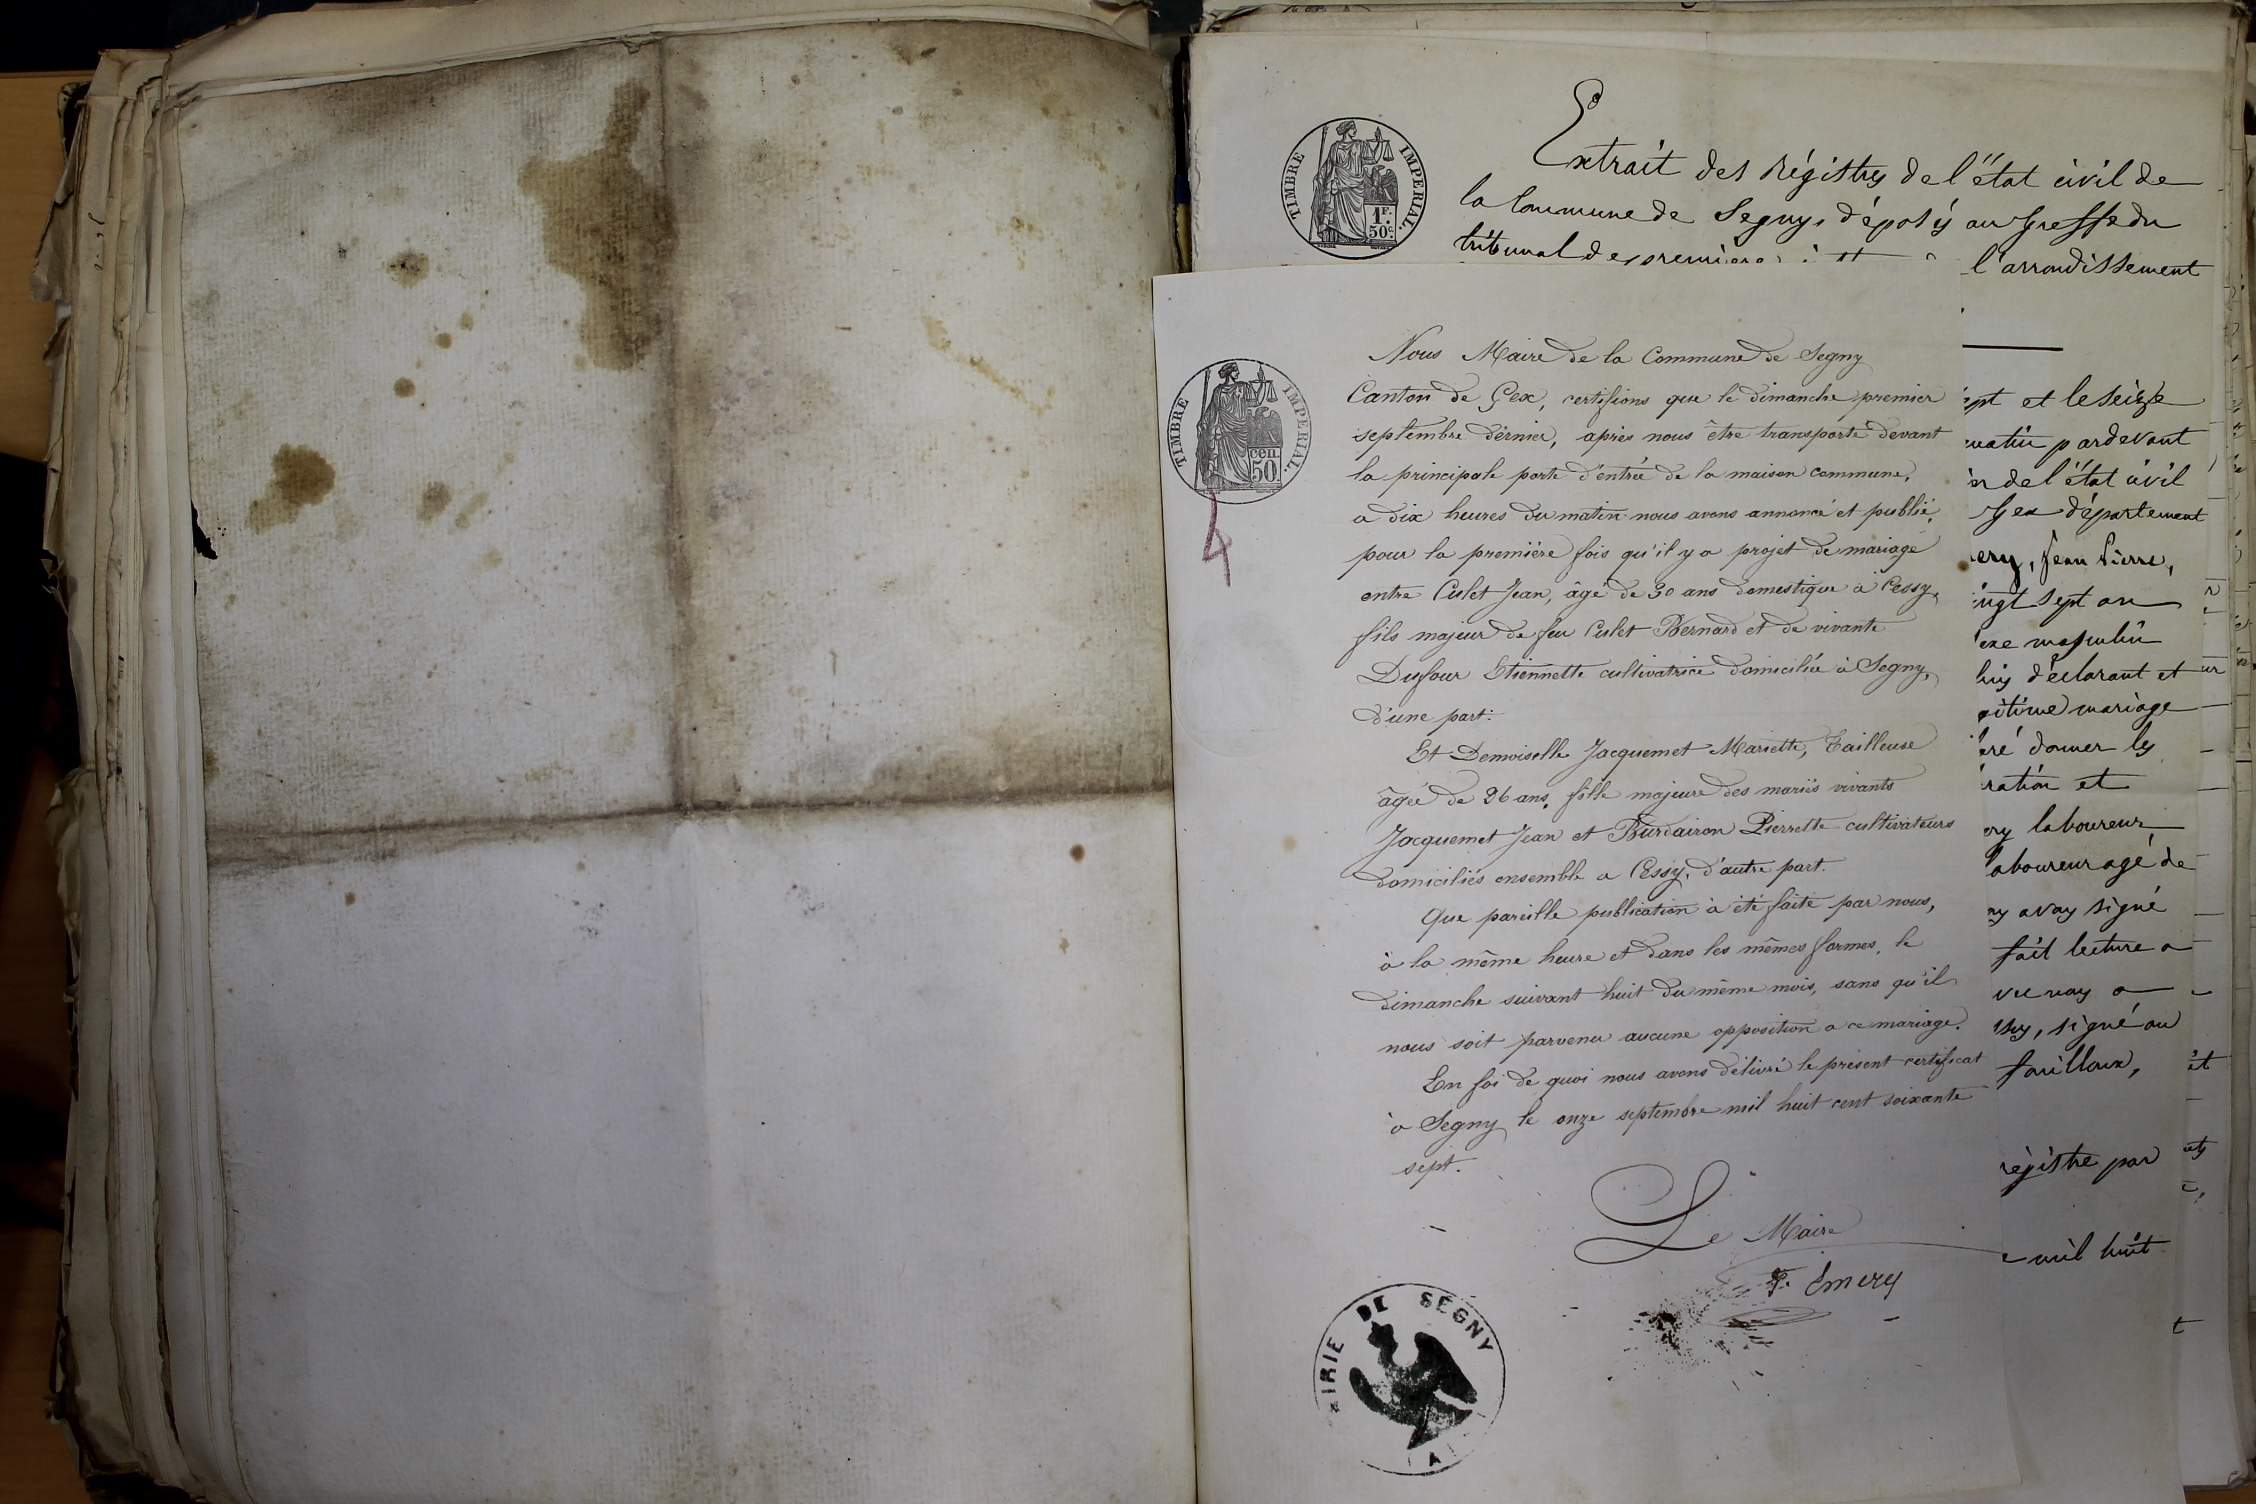 Extrait des Régistres de l'état civil de
la Commune de Segny, déposés au Greffe du
tribunal de première l'arrondissement
TIMBRE IMPERIAL.
1F. 50c.
Nous Maire de la Commune de Segny
Canton de Gex, certifions que le dimanche premier
septembre dérnier, après nous être transporté devant
la principale porte d'entrée de la maison commune,
a dix heures du matin nous avons annoncé et publié,
pour la première fois qu'il y a projet de mariage
entre Culet Jean, âgé de 30 ans domestique à Cessy,
fils majeur de feu Culet Bernard et de vivante
Dufour Etiennette cultivatrice domiciliée à Segny,
d'une part.
Et Demoiselle Jacquemet Mariette, Tailleuse
âgée de 26 ans, fille majeure des mariés vivants
Jacquemet Jean et Burdairon Pierrette cultivateurs
domiciliés ensemble a Cessy, d'autre part.
Que pareille publication à été faite par nous,
à la même heure et dans les mêmes formes, le
dimanche suivant huit du même mois, sans qu'il
nous soit parvenu aucune opposition a ce mariage.
En foi de quoi nous avons délivré le présent certificat
à Segny le onze septembre mil huit cent soixante
sept.
Le Maire
F. Emery
TIMBRE IMPERIAL.
cen. 50.
4
AIRIE DE SÉGNY
A
et le seize
pardevant
de l'état civil
Gex département
Jean Pierre,
sept an
masculin
déclarant et
mariage
donner les
et
laboureur
laboureur agé de
signé
fait lecture a
signé au
régistre par
mil huit